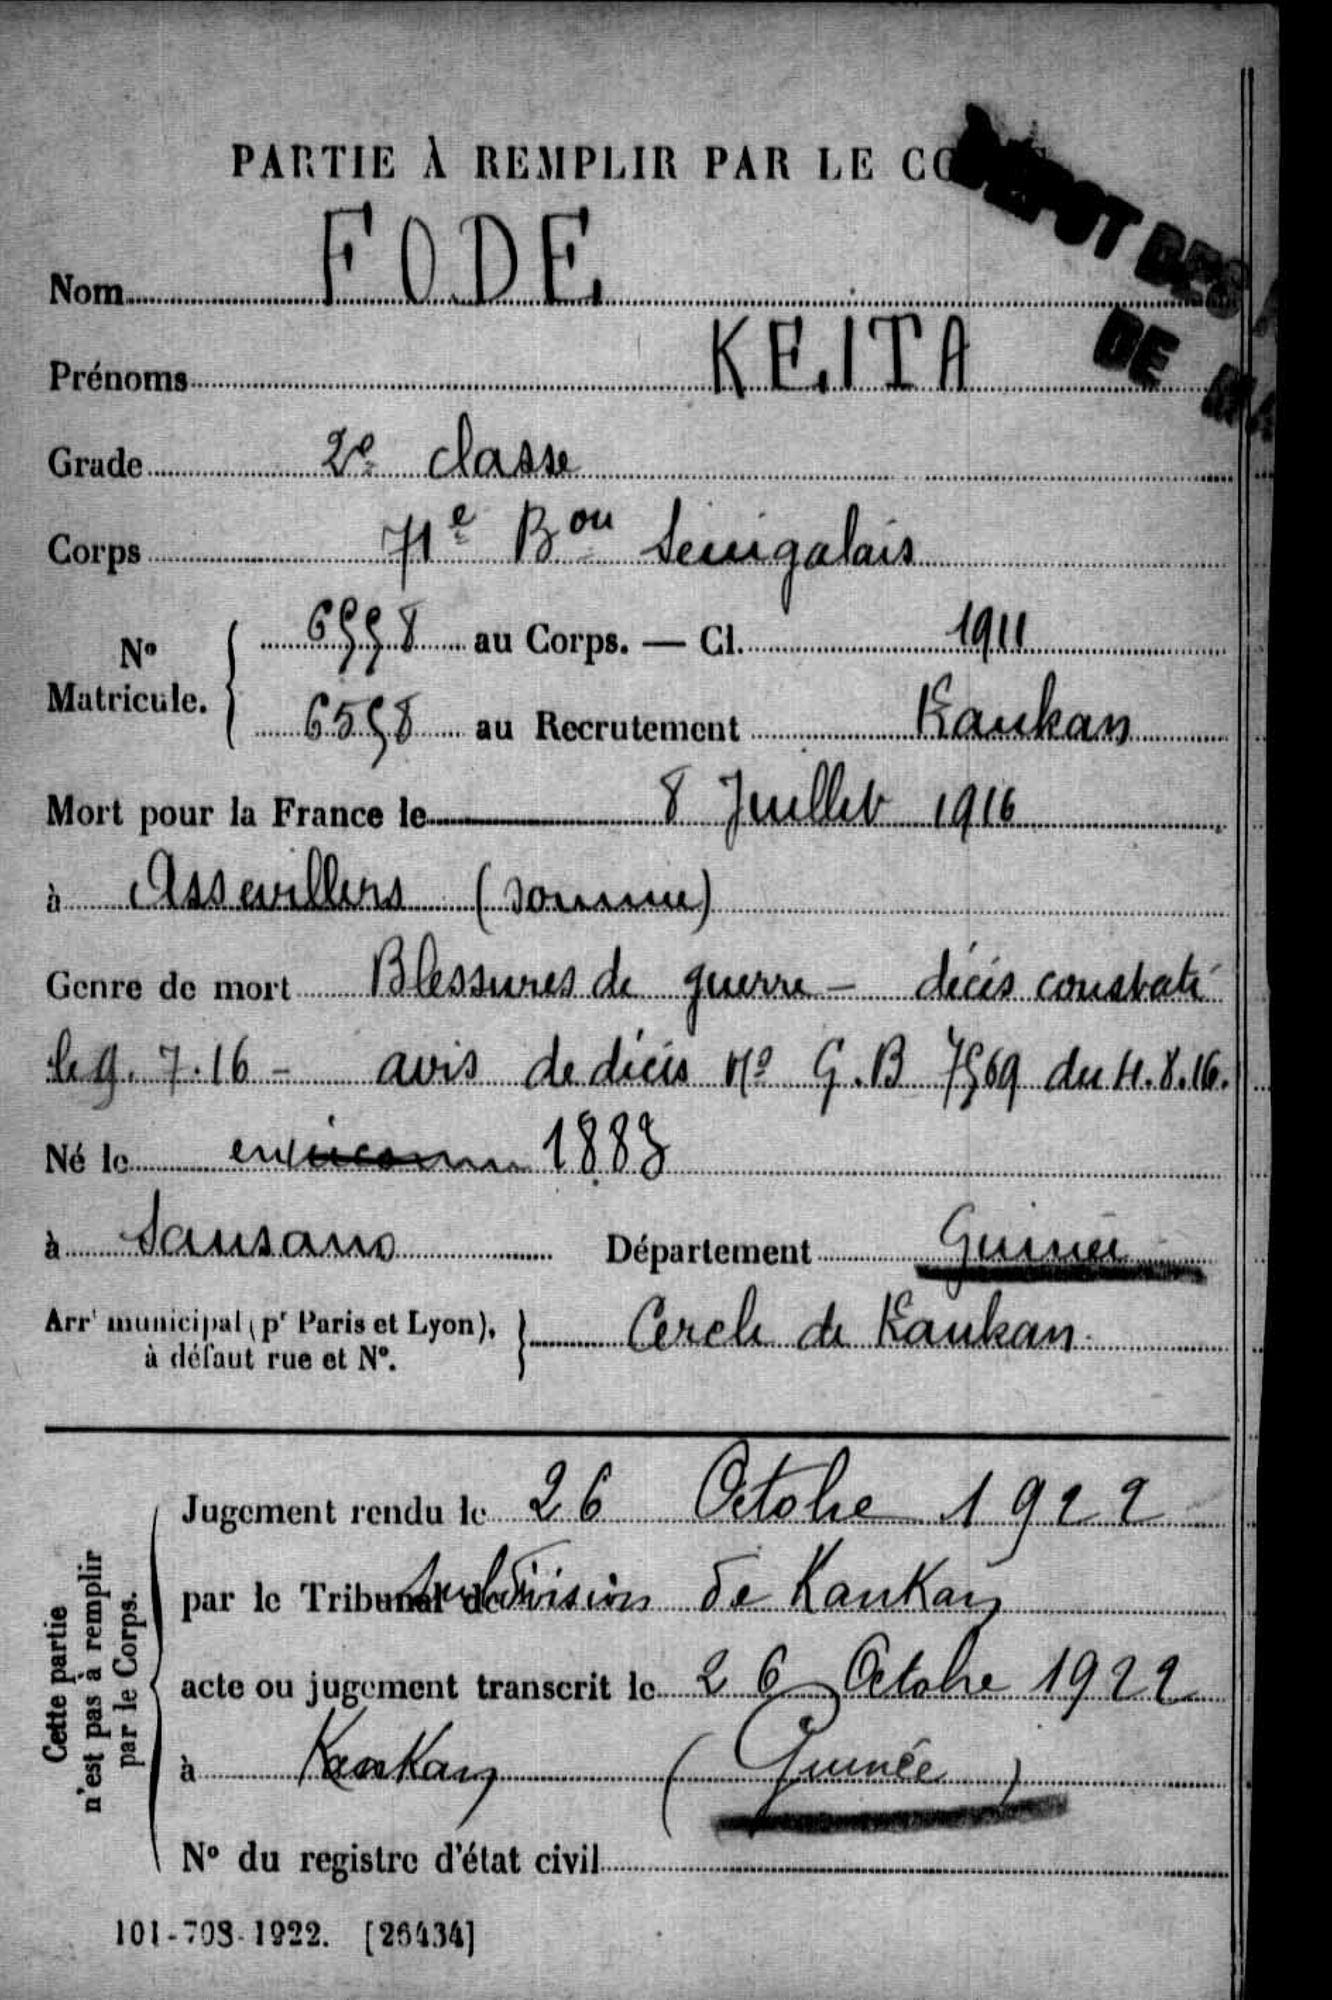 PARTIE À REMPLIR PAR LE CO
DÉPOT DES
DE
Nom FODE
Prénoms KEITA
Grade 2e classe
Corps 71e Bon Sénégalais
No Matricule. 6598 au Corps. — Cl. 1911
6598 au Recrutement Kankan
Mort pour la France le 8 Juillet 1916
à Assevillers (Somme)
Genre de mort Blessures de guerre - décès constaté
le 9.7.16 - avis de décès No G.B 7569 du 4.8.16.
Né le en 1883
à Sansano Département Guinée
Arrt municipal (pr Paris et Lyon), à défaut rue et No. Cercle de Kankan
Cette partie n'est pas à remplir par le Corps.
Jugement rendu le 26 Octobre 1922
par le Tribunal de Subdivision de Kankan
acte ou jugement transcrit le 26 Octobre 1922
à Kankan (Guinée)
No du registre d'état civil
101-708-1922. [26434]